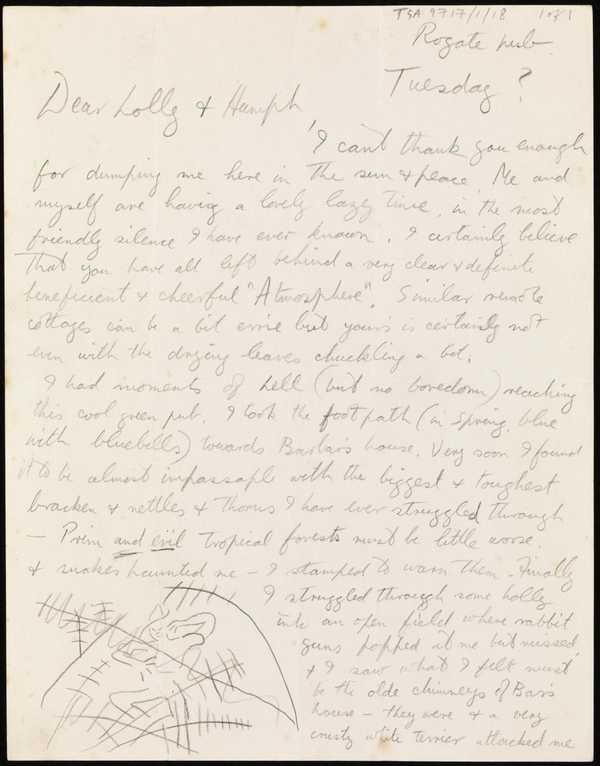 TGA 9717/1/18 1 of 1
Rogate pub.
Tuesday?
Dear Lolly & Humph,
I can't thank you enough
for dumping me here in the sun & peace. Me and
myself are having a lovely lazy time, in the most
friendly silence I have ever known. I certainly believe
that you have all left behind a very clear & definite
beneficient & cheerful "Atmosphere". Similar remote
cottages can be a bit eerie but yours is certainly not
even with the drying leaves chuckling a bit.
I had moments of hell (but no boredom) reaching
this cool green pub. I took the footpath (in spring, blue
with bluebells) towards house. Very soon I found
it to be almost impassaple with the biggest & toughest
bracken & nettles & thorns I have ever struggled through
— Prim and evil tropical forests must be little worse.
& snakes haunted me – I stamped to warn them. Finally
I struggled through some holly
into an open field where rabbit
guns popped at me but missed,
& I saw what I felt must
be the olde chimneys of
house – they were & a very
crusty white terrier attacked me